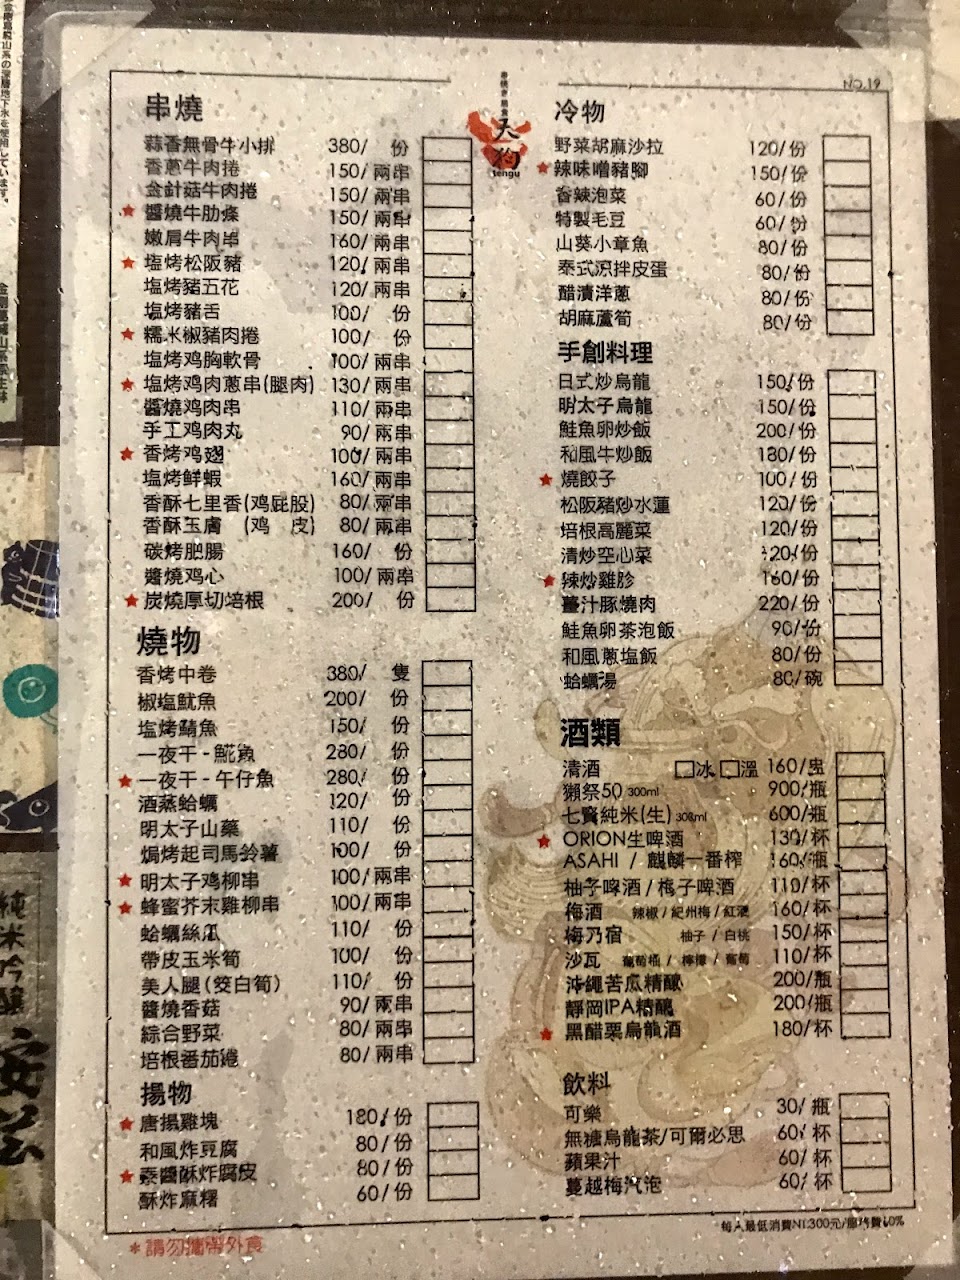 NO.19
天狗
tengu
串燒
蒜香無骨牛小排 380/ 份
香蔥牛肉捲 150/兩串
金針菇牛肉捲 150/兩串
★ 醬燒牛肋條 150/兩串
嫩肩牛肉串 160/兩串
★ 塩烤松阪豬 120/兩串
塩烤豬五花 120/兩串
塩烤豬舌 100/ 份
★ 糯米椒豬肉捲 100/ 份
塩烤鸡胸軟骨 100/兩串
★ 塩烤鸡肉蔥串(腿肉) 130/兩串
醬燒鸡肉串 110/兩串
手工鸡肉丸 90/兩串
★ 香烤鸡翅 100/兩串
塩烤鮮蝦 160/兩串
香酥七里香(鸡屁股) 80/兩串
香酥玉膚 (鸡 皮) 80/兩串
碳烤肥腸 160/ 份
醬燒鸡心 100/兩串
★ 炭燒厚切培根 200/ 份
燒物
香烤中卷 380/ 隻
椒塩魷魚 200/ 份
塩烤鯖魚 150/ 份
一夜干-鯤魚 280/ 份
★ 一夜干-午仔魚 280/ 份
酒蒸蛤蠣 120/ 份
明太子山藥 110/ 份
焗烤起司馬鈴薯 100/ 份
★ 明太子鸡柳串 100/兩串
★ 蜂蜜芥末雞柳串 100/兩串
蛤蠣絲瓜 110/ 份
帶皮玉米筍 100/ 份
美人腿(筊白筍) 110/ 份
醬燒香菇 90/兩串
綜合野菜 80/兩串
培根番茄捲 80/兩串
揚物
★ 唐揚雞塊 180/份
和風炸豆腐 80/份
★ 素醬酥炸腐皮 80/份
酥炸麻糬 60/份
*請勿攜帶外食
冷物
野菜胡麻沙拉 120/份
★ 辣味噌豬腳 150/份
香辣泡菜 60/份
特製毛豆 60/份
山葵小章魚 80/份
泰式涼拌皮蛋 80/份
醋漬洋蔥 80/份
胡麻蘆筍 80/份
手創料理
日式炒烏龍 150/份
明太子烏龍 150/份
鮭魚卵炒飯 200/份
和風牛炒飯 180/份
★ 燒餃子 100/份
松阪豬炒水蓮 120/份
培根高麗菜 120/份
清炒空心菜 120/份
★ 辣炒雞胗 160/份
薑汁豚燒肉 220/份
鮭魚卵茶泡飯 90/份
和風蔥塩飯 80/份
蛤蠣湯 80/碗
酒類
清酒 □冰 □溫 160/盅
獺祭50 300ml 900/瓶
七賢純米(生) 300ml 600/瓶
★ ORION生啤酒 130/杯
ASAHI / 麒麟一番榨 160/瓶
柚子啤酒/梅子啤酒 110/杯
梅酒 辣椒/紀州梅/紅酒 160/杯
梅乃宿 柚子 / 白桃 150/杯
沙瓦 葡萄柚 / 檸檬 / 葡萄 110/杯
沖繩苦瓜精釀 200/瓶
靜岡IPA精釀 200/瓶
★ 黑醋栗烏龍酒 180/杯
飲料
可樂 30/瓶
無糖烏龍茶/可爾必思 60/杯
蘋果汁 60/杯
蔓越梅汽泡 60/杯
每人最低消費NT.300元/服務費10%
純米吟醸